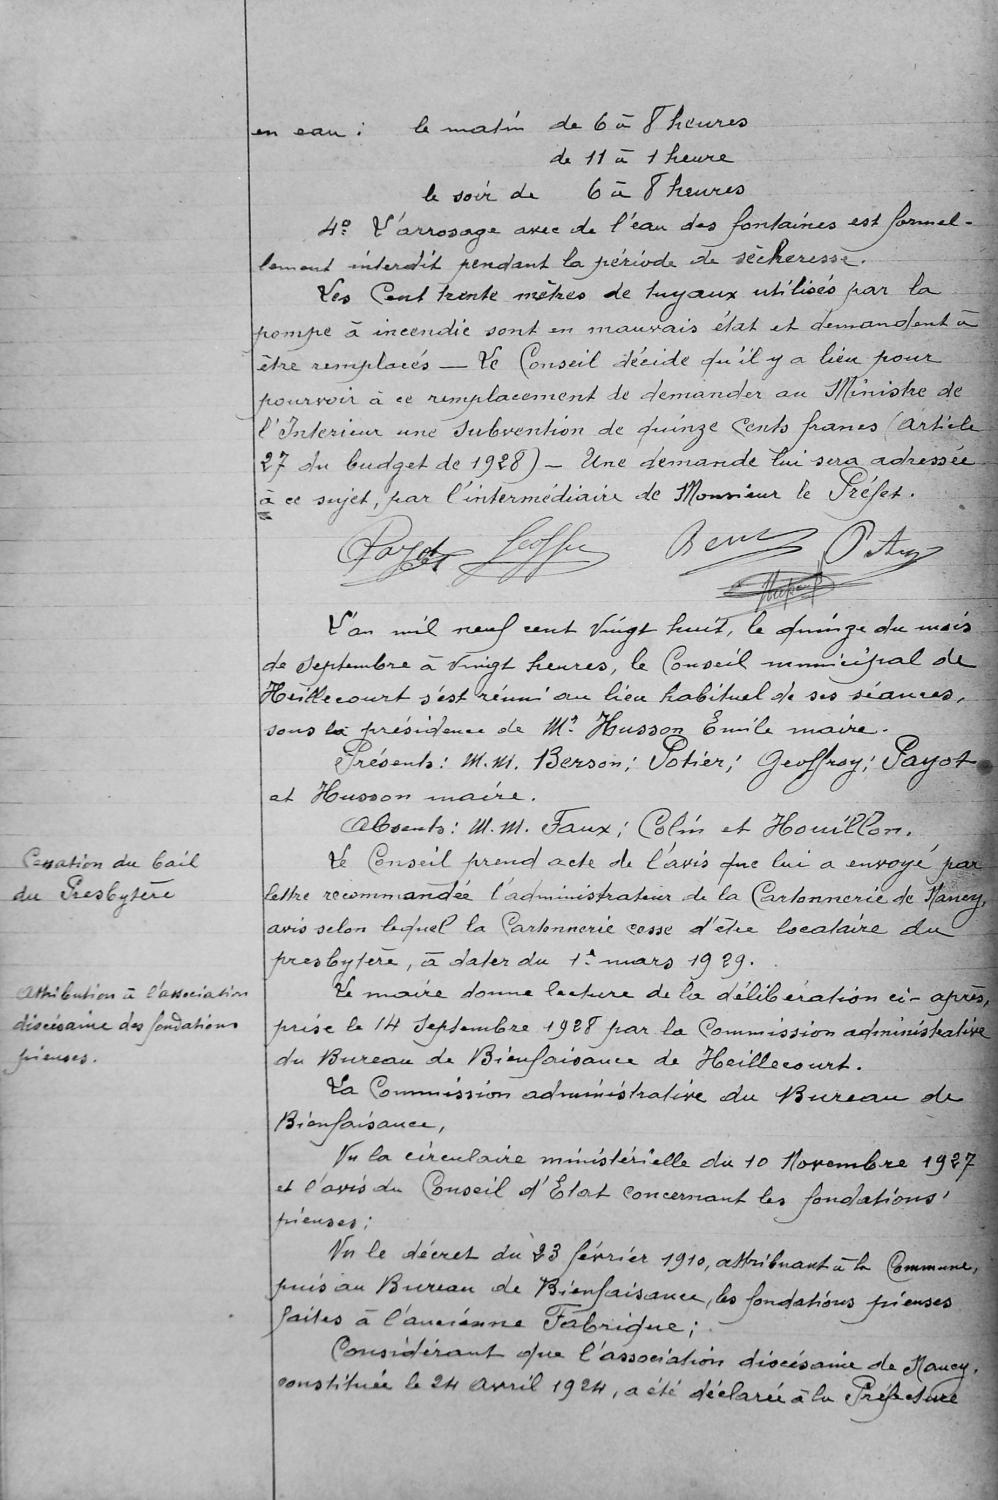 en eau : le matin de 6 à 8 heures
de 11 à 1 heure
le soir de 6 à 8 heures
4º L'arrosage avec de l'eau des fontaines est formel-
lement interdit pendant la période de sècheresse.
Les Cent trente mètres de tuyaux utilisés par la
pompe à incendie sont en mauvais état et demandent à
être remplacés — Le Conseil décide qu'il y a lieu pour
pourvoir à ce remplacement de demander au Ministre de
l'Interieur une subvention de quinze cents francs (article
27 du budget de 1928) — Une demande lui sera adressée
à ce sujet, par l'intermédiaire de Monsieur le Préfet.
Payot Geoffroy Berson Potier
Husson
L'an mil neuf cent vingt huit, le quinze du mois
de septembre à vingt heures, le Conseil municipal de
Heillecourt s'est réuni au lieu habituel de ses séances,
sous la présidence de Mr Husson Emile maire.
Présents : M.M. Berson ; Potier ; Geoffroy ; Payot
et Husson maire.
Absents : M.M. Faux ; Colin et Houillon.
Cessation du bail
du Presbytère
Le Conseil prend acte de l'avis que lui a envoyé par
lettre recommandée l'administrateur de la Cartonnerie de Nancy,
avis selon lequel la Cartonnerie cesse d'être locataire du
presbytère, à dater du 1er mars 1929.
Attribution à l'association
diocésaine des fondations
pieuses.
Le maire donne lecture de la délibération ci-après,
prise le 14 septembre 1928 par la Commission administrative
du Bureau de Bienfaisance de Heillecourt.
La Commission administrative du Bureau de
Bienfaisance,
Vu la circulaire ministérielle du 10 Novembre 1927
et l'avis du Conseil d'Etat concernant les fondations
pieuses ;
Vu le décret du 23 février 1910, attribuant à la Commune,
puis au Bureau de Bienfaisance, les fondations pieuses
faites à l'ancienne Fabrique ;
Considérant que l'association diocésaine de Nancy,
constituée le 24 avril 1924, a été déclarée à la Préfecture